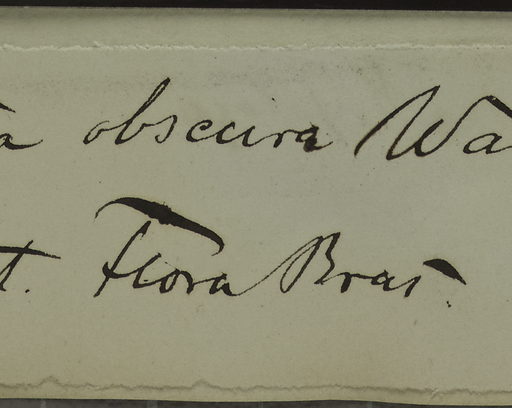 a obscura Wa
t. Flora Bras.